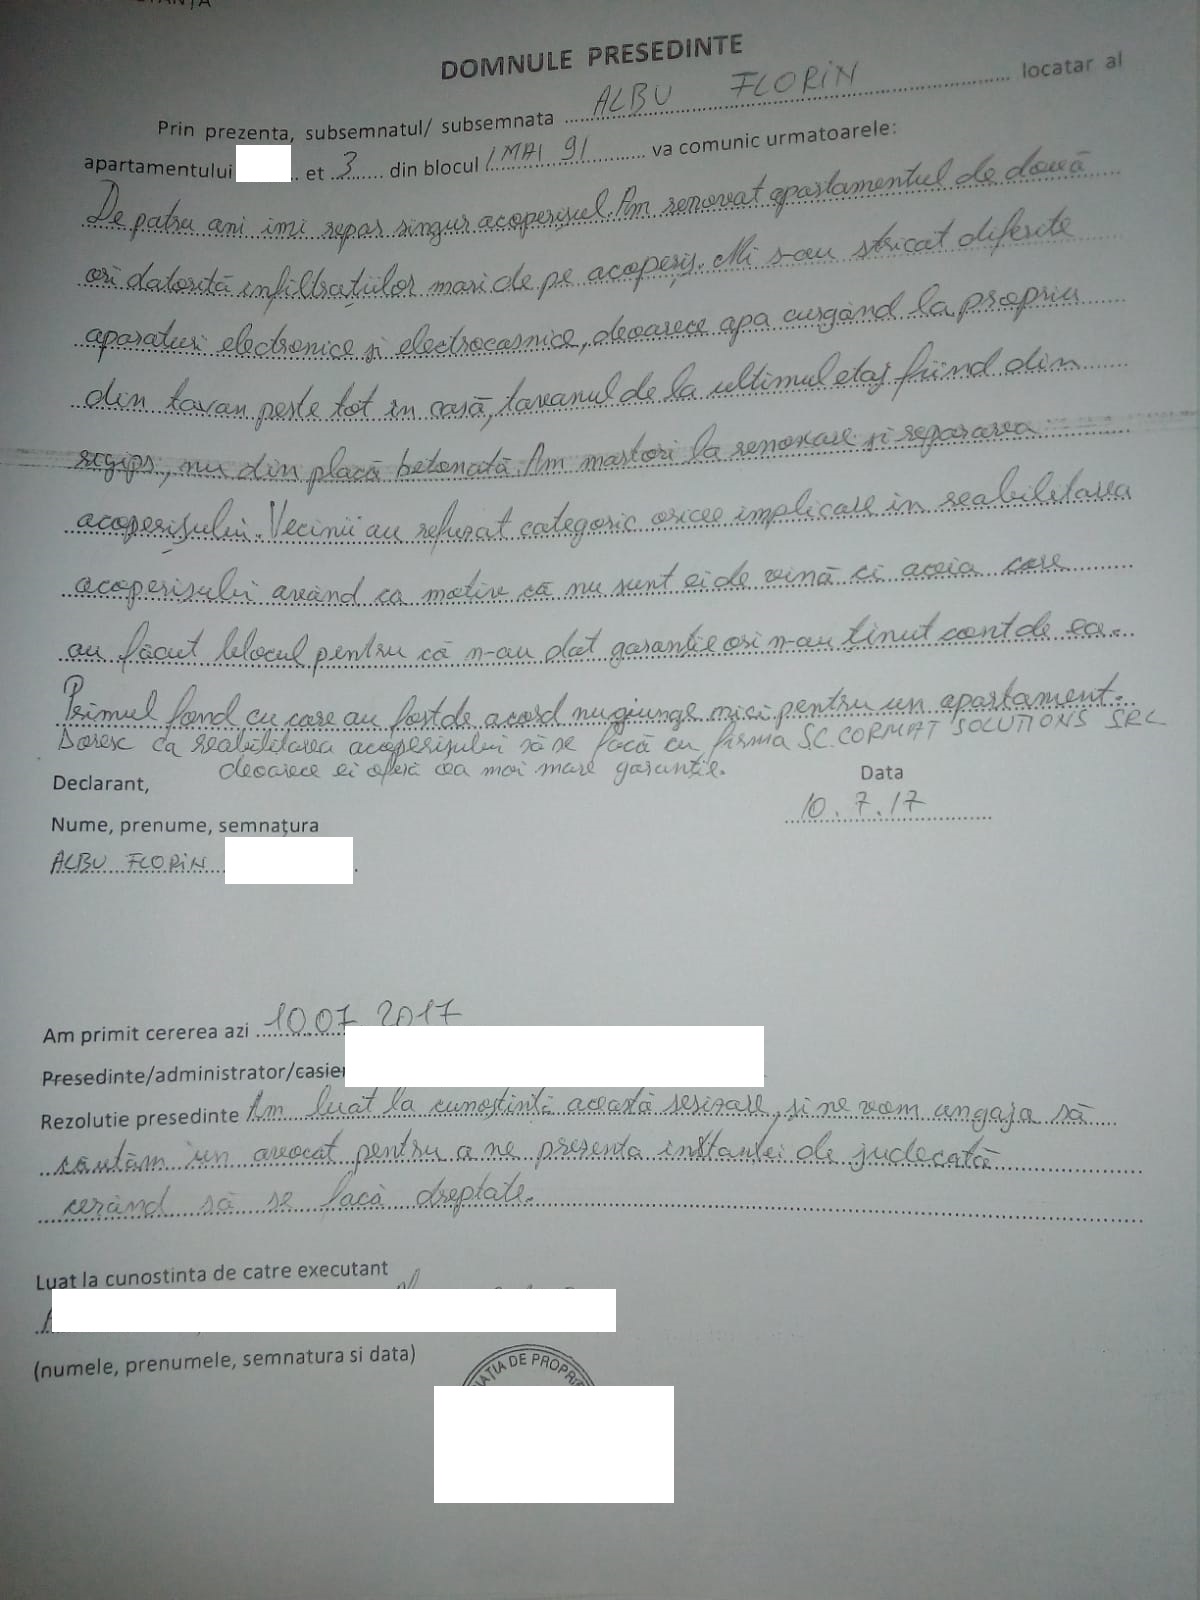 DOMNULE PRESEDINTE
Prin prezenta, subsemnatul/ subsemnata ALBU FLORIN locatar al
apartamentului et 3 din blocul 1 MAI 91 va comunic urmatoarele:
De patru ani imi repar singur acoperișul. Am renovat apartamentul de două
ori datorită infiltrațiilor mari de pe acoperiș. Mi s-au stricat diferite
aparaturi electronice și electrocasnice, deoarece apa curgând la propriu
din tavan peste tot in casă, tavanul de la ultimul etaj fiind din
rigips, nu din placă betonată. Am martori la renovare și repararea
acoperișului. Vecinii au refuzat categoric orice implicare in reabilitarea
acoperișului având ca motive că nu sunt ei de vină ci aceia care
au făcut blocul pentru că n-au dat garantie ori n-au ținut cont de ea.
Primul fond cu care au fost de acord nu giunge nici pentru un apartament.
Doresc ca reabilitarea acoperișului să se facă cu firma SC. CORMAT SOLUTIONS SRL
deoarece ei oferă cea mai mare garanție.
Declarant,
Data
10.7.17
Nume, prenume, semnațura
ALBU FLORIN
Am primit cererea azi 10.07 2017
Presedinte/administrator/casier
Rezolutie presedinte Am luat la cunoștință această sesizare, și ne vom angaja să
căutăm un avocat pentru a ne prezenta instanței de judecată
cerând să se facă dreptate.
Luat la cunostinta de catre executant
(numele, prenumele, semnatura si data)
DE